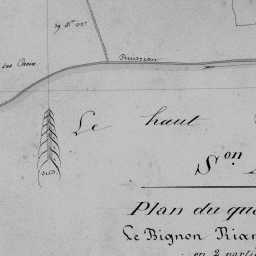 Ruisseau
Le haut
S.on
Plan du qu
Le Bignon Rian
en 2 parti